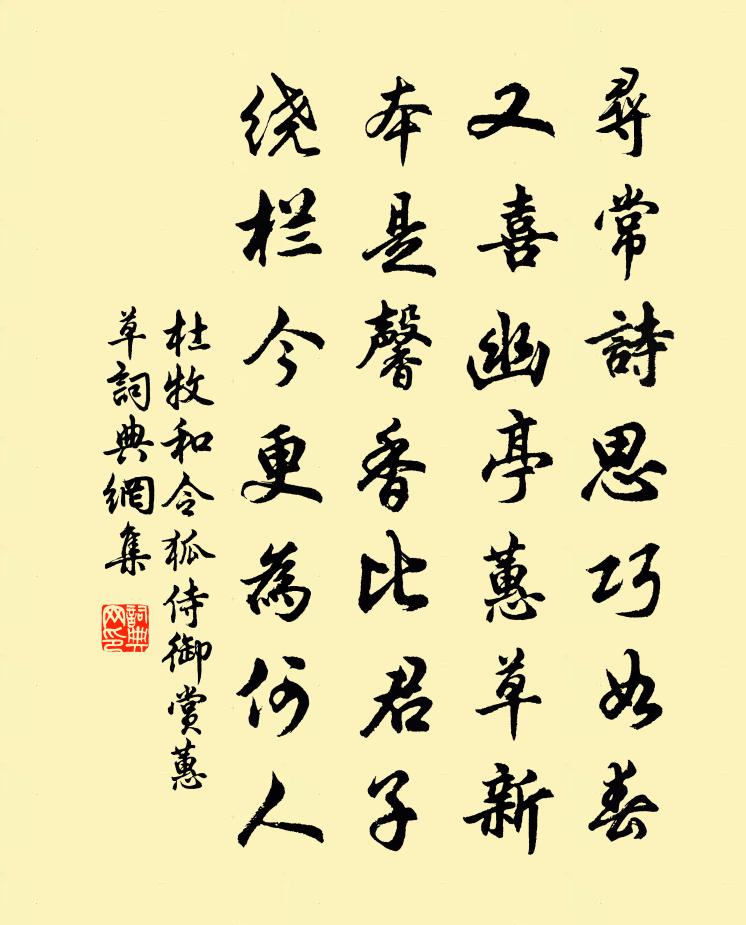 尋常詩思巧如春
又喜幽亭蕙草新
本是馨香比君子
绕栏今更為何人
杜牧和令狐侍御賞蕙
草詞典網集
詞典
网印